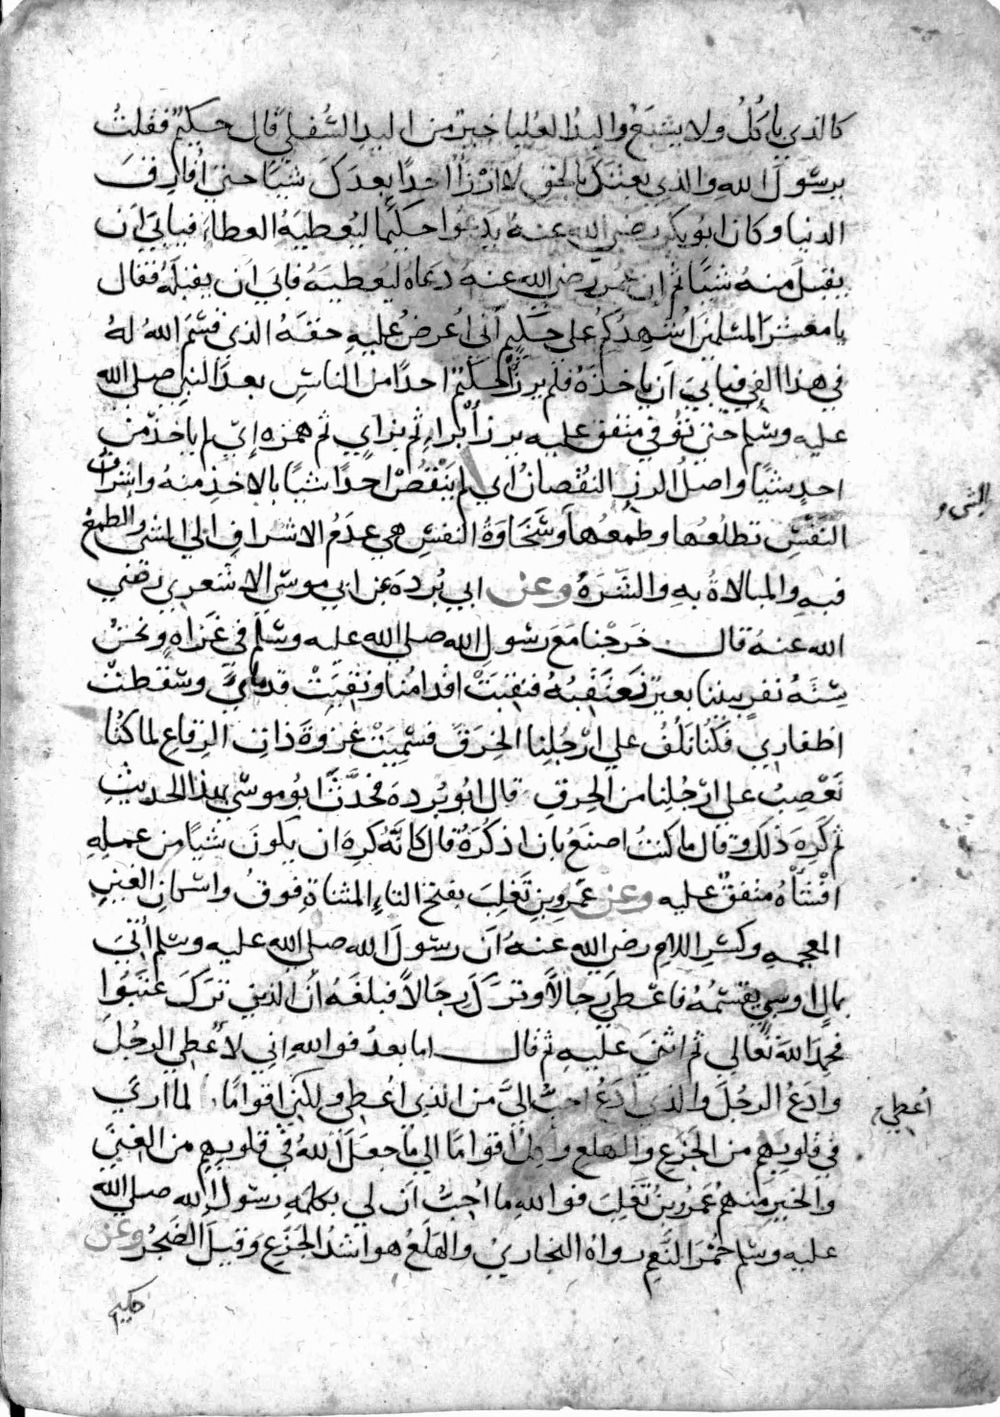 كالذي ياكُلُ ولا يشبَعُ واليدُ العُليا خيرٌ من اليدِ السُّفلي قال حكيمٌ فقلتُ
يرسُولَ اللهِ والذي بعثكَ بالحق لا ارْزَأُ احدًا بعدكَ شيًا حتي أُفارقَ
الدنيا وكان ابو بكر رضي الله عنهُ يَدعُوا حكيمًا ليُعطيَهُ العطاءَ فيابَي اَن
يقبلَ منهُ شيًا ثم ان عُمر رضي الله عنهُ دعاهُ ليُعطيَهُ فابَي اَن يقبلَهُ فقال
يا معشرَ المسلمينَ اُشهِدُكم علي حكيمٍ اَني اُعرضُ عليهِ حقَهُ الذي قسَمَ اللهُ لهُ
في هذا الفي فيابَي اَن ياخذَهُ فلم يرزَأْ حكيمٌ احدًا من الناسِ بعد النبي صلي الله
عليه وسلم حتي تُوُفي متفق عليه يرزأُ براءٍ ثم زايٍ ثم همزه اي لم ياخذ من
احدٍ شيًا واصلُ الرزءِ النقصانُ اي لم يَنْقُصْ احدًا شيًا بالاخذِ منهُ واِشرافُ
النَفْسِ تطلُعُها وطمعُها وسَخَاوَةُ النفسِ هي عدَمُ الاشرافِ الي الشي والطمعْ
فيه والمبالاةُ بهِ والشَّرَهُ وعن ابي بُردهَ عن ابي موسي الاشعري رضي
الله عنهُ قال خرجْنا مَعَ رسُولِ الله صلي الله عليه وسلم في غَزاهٍ ونحنُ
سِتَهُ نفرٍ بيننا بعيرٌ نَعْتَقِبُهُ فنقِبَتْ اقدامُنا ونَقِبَتْ قدمايَ وسقطتْ
اظفاري فكُنا نلُفُ علي ارْجُلِنا الخِرَقَ فسُمِيَتْ غزوةَ ذاتِ الرِقاعِ لما كُنا
نَعْصِبُ علي ارْجُلِنا من الخِرقِ قال ابو بُردهَ فحدَّثَ ابو موسَي بهذا الحديثِ
ثم كَرِهَ ذلكَ وقال ما كنتُ اصنعُ بان اذكُرَهُ قال كانَّهُ كرِهَ ان يكونَ شيًا من عملِهِ
افْشَاهُ متفقٌ عليه وعن عَمرو بنِ تَغلِبَ بفتح التاءِ المثناةِ فوقُ واسكانِ الغينِ
المعجمهِ وكسْرِ اللامِ رضي الله عنهُ اَن رسُولَ الله صلي الله عليه وسلم اُتيَ
بمالٍ او سبيٍ فقسَّمَهُ فاعطَي رجالاً وتركَ رجالاً فبلغَهُ اَنَّ الذينَ تركَ عتَبُوا
فحمِدَ اللهَ تعالي ثم اثنَي عليهِ ثم قال اما بعدُ فواللهِ اِني لاُعطي الرجُلَ
وادَعُ الرجُلَ والذي اَدَعُ احبُّ اليَّ من الذي اُعطي ولكني اقوامًا لما اري أُعطي
في قلوبِهم من الجَزَعِ والهلعِ واكِلُ اقوامًا الي ما جعَلَ اللهُ في قلوبِهم من الغِنَي
والخيرِ منهُم عَمرُو بنُ تَغلِبَ فواللهِ ما اُحبُّ اَن لي بكلمهِ رسُولِ الله صلي الله
عليه وسلم حُمْرَ النَّعمِ رواهُ البخاريُ والهَلَعُ هو اشدُ الجزَعِ وقيلَ الضجُرُ وعن
حكيم